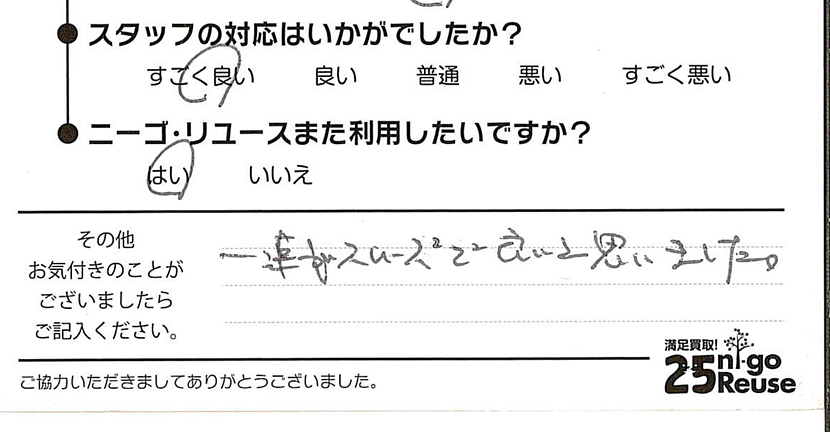 スタッフの対応はいかがでしたか?
すごく良い 良い 普通 悪い すごく悪い
ニーゴ・リユースまた利用したいですか?
はい いいえ
その他
お気付きのことが
ございましたら
ご記入ください。
一連がスムーズで良いと思いました。
ご協力いただきましてありがとうございました。
満足買取!
25 ni-go
Reuse